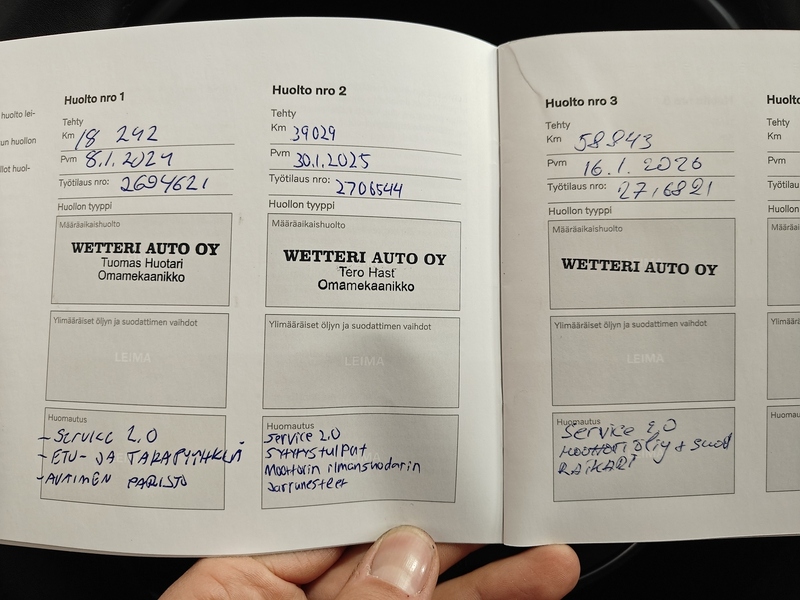 huolto lei-
un huollon
llot huol-
Huolto nro 1
Tehty
Km 18 242
Pvm 8.1.2024
Työtilaus nro: 2694621
Huollon tyyppi
Määräaikaishuolto
WETTERI AUTO OY
Tuomas Huotari
Omamekaanikko
Ylimääräiset öljyn ja suodattimen vaihdot
LEIMA
Huomautus
- Service 2.0
- ETU- JA TAKAPYYHKIJÄ
- AVAIMEN PARISTO
Huolto nro 2
Tehty
Km 39029
Pvm 30.1.2025
Työtilaus nro: 2706544
Huollon tyyppi
Määräaikaishuolto
WETTERI AUTO OY
Tero Hast
Omamekaanikko
Ylimääräiset öljyn ja suodattimen vaihdot
LEIMA
Huomautus
Service 2.0
Sytytystulpat
Moottorin ilmansuodatin
Jarrunesteet
Huolto nro 3
Tehty
Km 58843
Pvm 16.1.2026
Työtilaus nro: 2716821
Huollon tyyppi
Määräaikaishuolto
WETTERI AUTO OY
Ylimääräiset öljyn ja suodattimen vaihdot
LEIMA
Huomautus
Service 2.0
moottoriöljy + suod
RAIKARI
Huolto
Tehty
Km
Pvm
Työtilau
Huollon
Määräaik
Ylimäärä
Huomaut